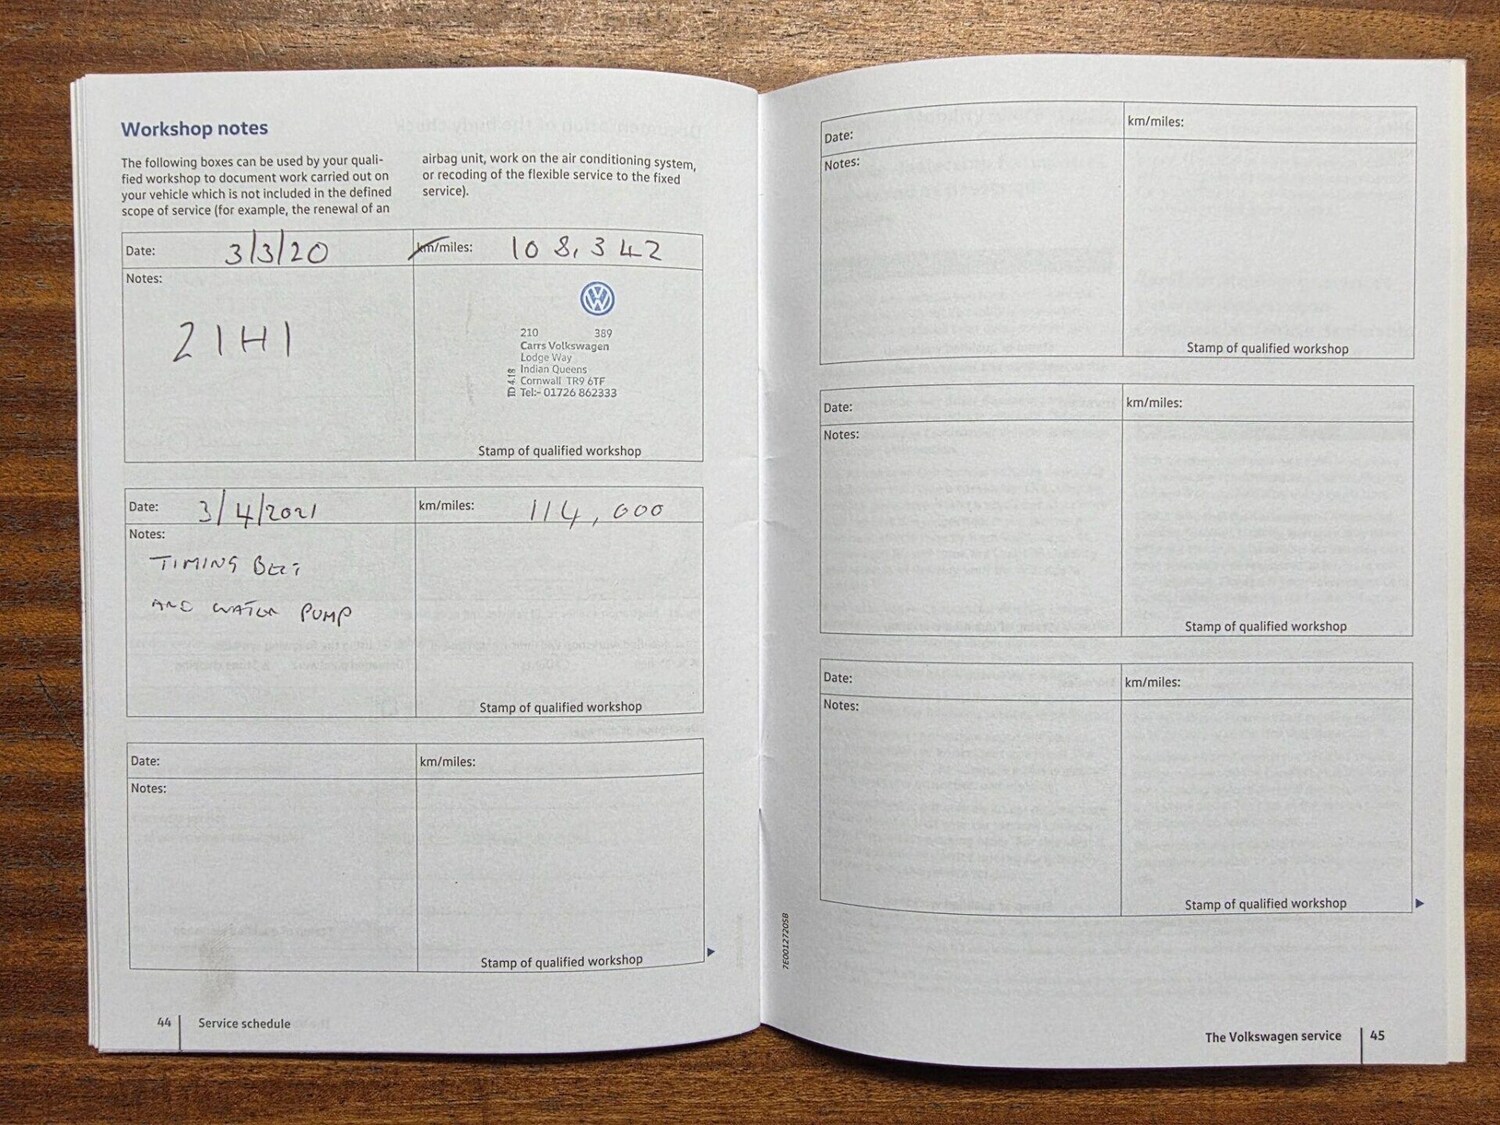 Workshop notes
The following boxes can be used by your quali-
fied workshop to document work carried out on
your vehicle which is not included in the defined
scope of service (for example, the renewal of an
airbag unit, work on the air conditioning system,
or recoding of the flexible service to the fixed
service).
Date: 3/3/20
km/miles: 108,342
Notes:
21H1
210 389
Carrs Volkswagen
Lodge Way
Indian Queens
Cornwall TR9 6TF
Tel:- 01726 862333
ID 4.18
Stamp of qualified workshop
Date: 3/4/2021
km/miles: 114,000
Notes:
TIMING BELT
AND WATER PUMP
Stamp of qualified workshop
Date:
km/miles:
Notes:
Stamp of qualified workshop
44 Service schedule
Date:
km/miles:
Notes:
Stamp of qualified workshop
Date:
km/miles:
Notes:
Stamp of qualified workshop
Date:
km/miles:
Notes:
Stamp of qualified workshop
7E0012720SB
The Volkswagen service 45